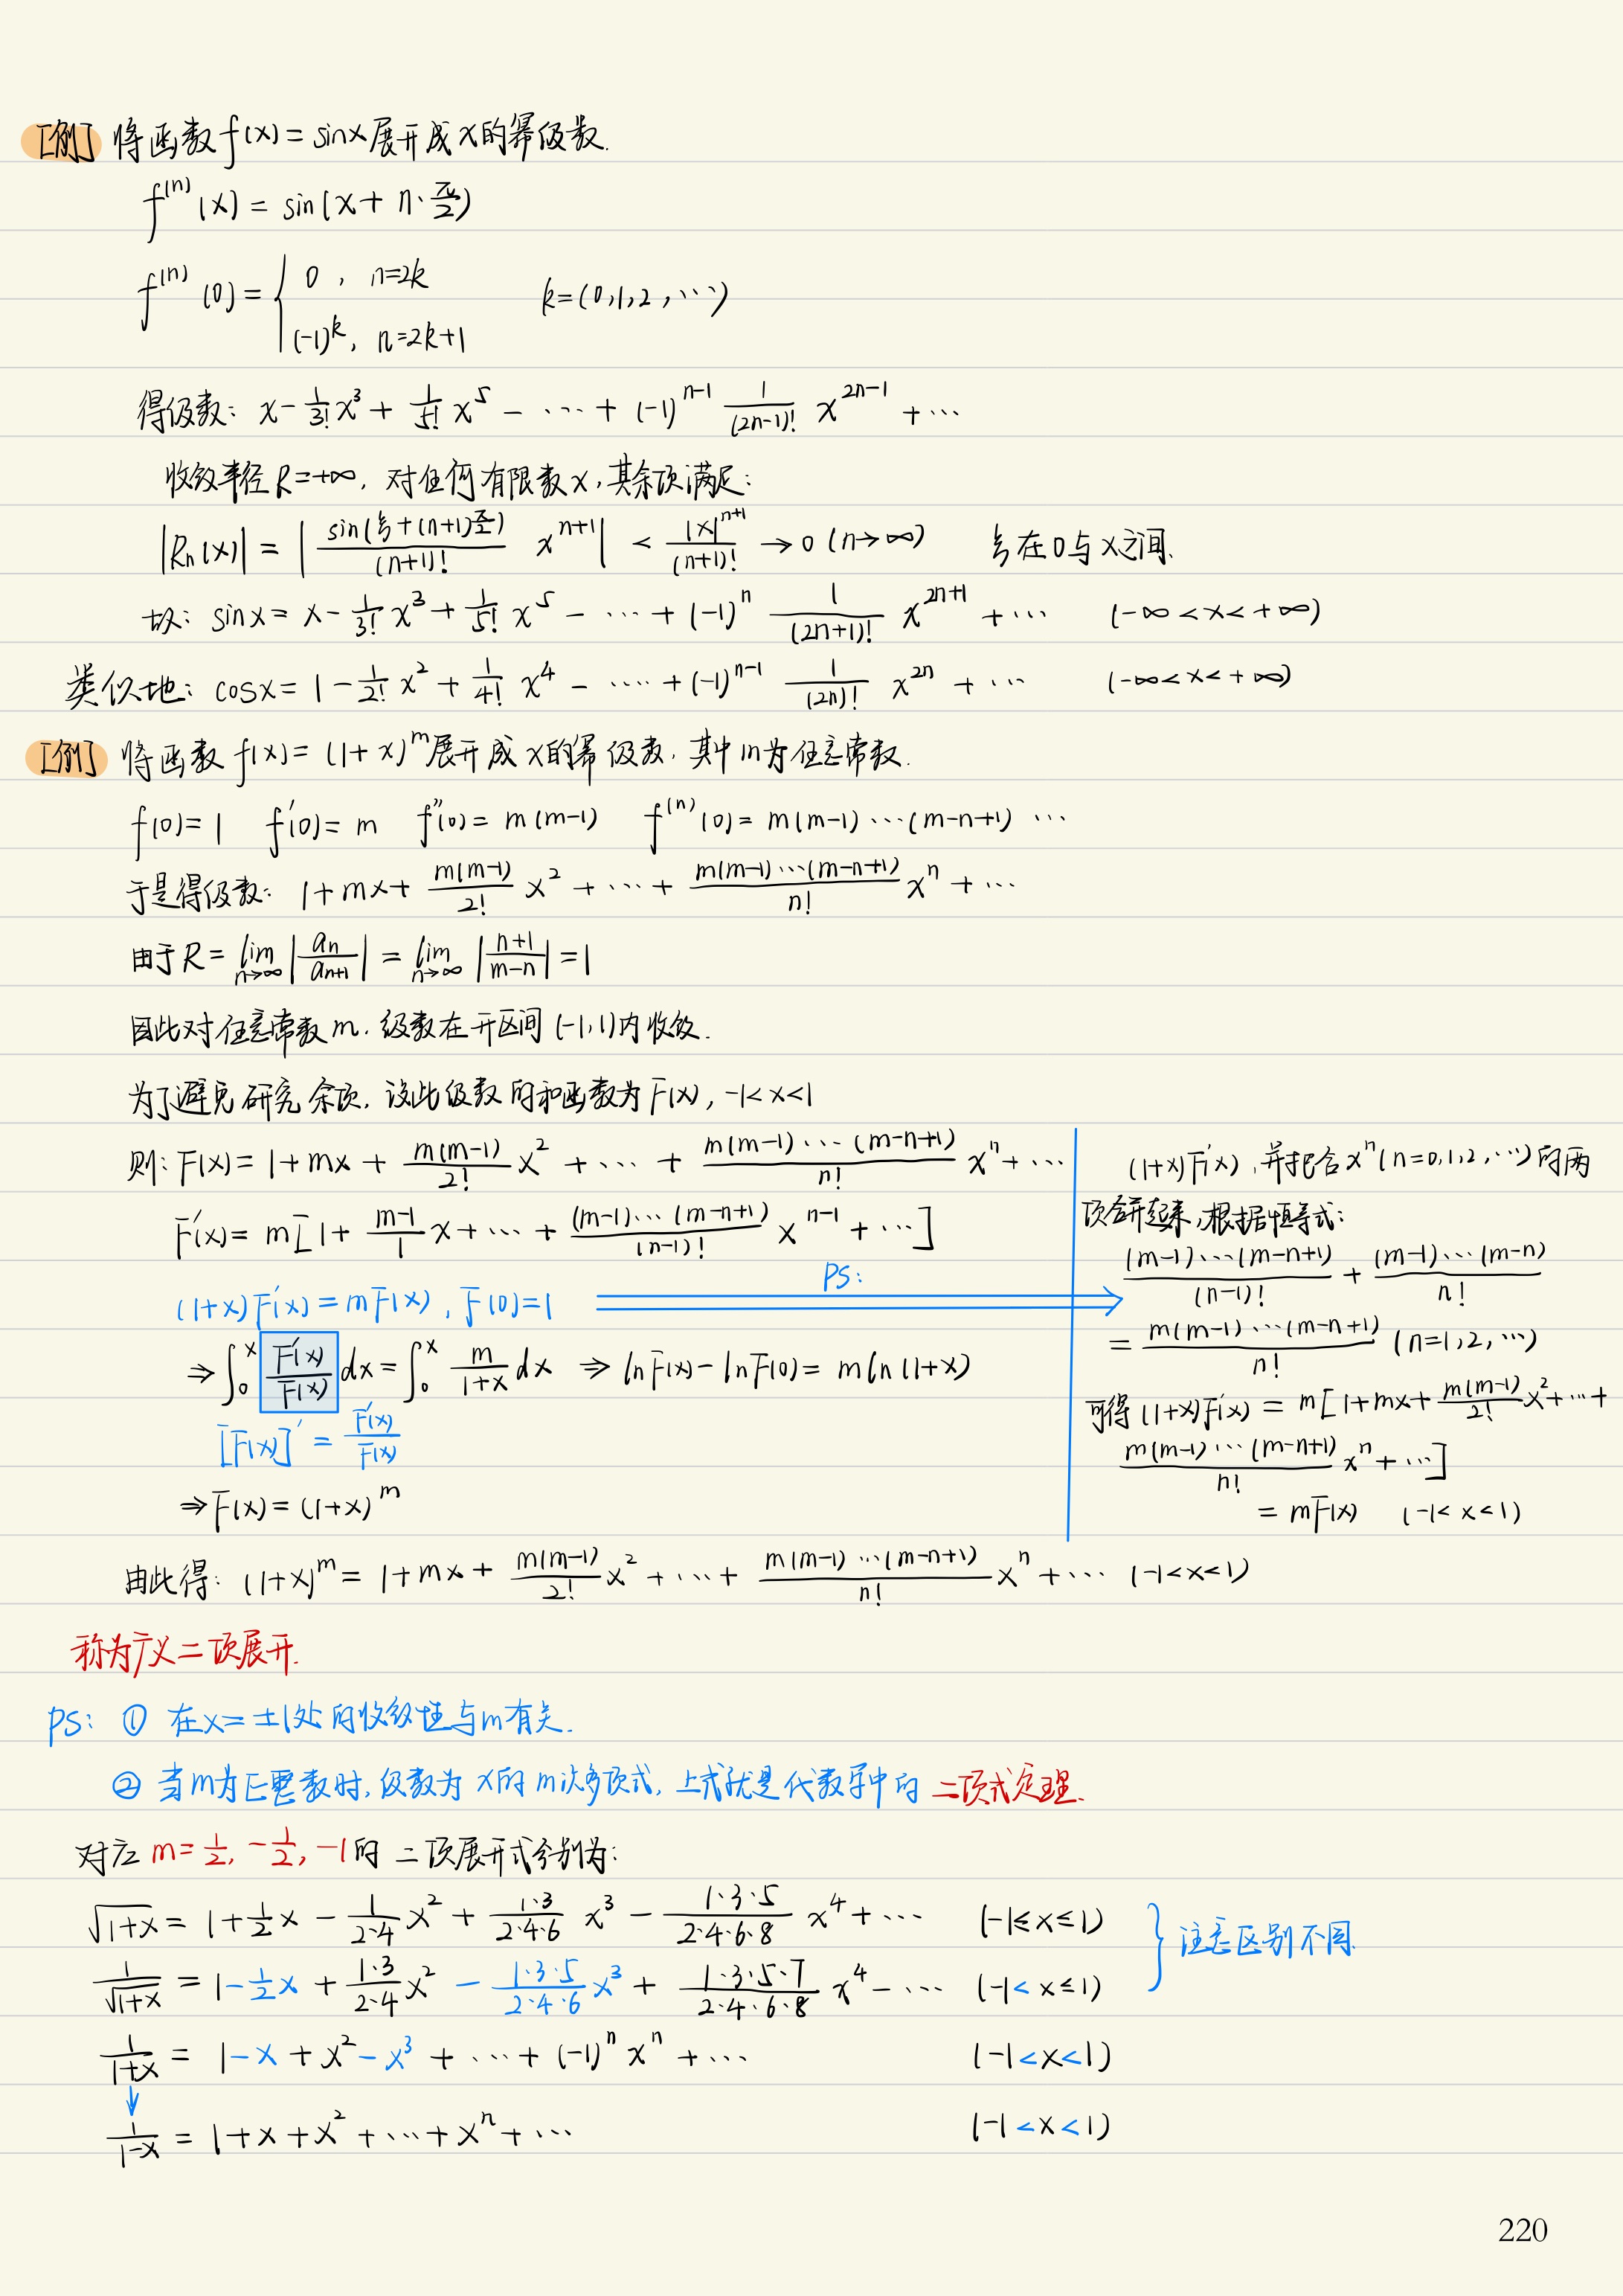 [例] 将函数 f(x) = sinx 展开成 x 的幂级数.
f⁽ⁿ⁾(x) = sin(x + n·π/2)
f⁽ⁿ⁾(0) = { 0, n=2k
(-1)ᵏ, n=2k+1    k=(0,1,2,⋯)
得级数: x - 1/3! x³ + 1/5! x⁵ - ⋯ + (-1)ⁿ⁻¹ 1/(2n-1)! x²ⁿ⁻¹ + ⋯
收敛半径 R=+∞, 对任何有限数 x, 其余项满足:
|Rn(x)| = | sin(ξ+(n+1)π/2)/(n+1)! xⁿ⁺¹ | < |x|ⁿ⁺¹/(n+1)! → 0 (n→∞)    ξ在0与x之间.
故: sinx = x - 1/3! x³ + 1/5! x⁵ - ⋯ + (-1)ⁿ 1/(2n+1)! x²ⁿ⁺¹ + ⋯    (-∞ < x < +∞)
类似地: cosx = 1 - 1/2! x² + 1/4! x⁴ - ⋯ + (-1)ⁿ⁻¹ 1/(2n)! x²ⁿ + ⋯    (-∞ < x < +∞)
[例] 将函数 f(x) = (1+x)ᵐ 展开成 x 的幂级数, 其中 m 为任意常数.
f(0)=1  f′(0)=m  f″(0)=m(m-1)  f⁽ⁿ⁾(0)=m(m-1)⋯(m-n+1) ⋯
于是得级数: 1+mx+ m(m-1)/2! x² + ⋯ + m(m-1)⋯(m-n+1)/n! xⁿ + ⋯
由于 R = lim n→∞ |an/an+1| = lim n→∞ |(n+1)/(m-n)| = 1
因此对任意常数 m, 级数在开区间 (-1,1) 内收敛.
为了避免研究余项, 设此级数的和函数为 F(x), -1<x<1
则: F(x) = 1+mx+ m(m-1)/2! x² + ⋯ + m(m-1)⋯(m-n+1)/n! xⁿ + ⋯
F′(x) = m[1+ (m-1)/1 x + ⋯ + (m-1)⋯(m-n+1)/(n-1)! xⁿ⁻¹ + ⋯]
(1+x)F′(x) = mF(x), F(0)=1    PS:
⇒ ∫₀ˣ F′(x)/F(x) dx = ∫₀ˣ m/(1+x) dx ⇒ lnF(x) - lnF(0) = mln(1+x)
[F(x)]′ = F′(x)/F(x)
⇒ F(x) = (1+x)ᵐ
(1+x)F′(x), 并把含 xⁿ(n=0,1,2,⋯)的两
项合并起来, 根据恒等式:
(m-1)⋯(m-n+1)/(n-1)! + (m-1)⋯(m-n)/n!
= m(m-1)⋯(m-n+1)/n! (n=1,2,⋯)
可得 (1+x)F′(x) = m[1+mx+ m(m-1)/2! x² + ⋯ +
m(m-1)⋯(m-n+1)/n! xⁿ + ⋯]
= mF(x)    (-1<x<1)
由此得: (1+x)ᵐ = 1+mx+ m(m-1)/2! x² + ⋯ + m(m-1)⋯(m-n+1)/n! xⁿ + ⋯ (-1<x<1)
称为广义二项展开.
PS: ① 在 x=±1 处的收敛性与 m 有关.
② 当 m 为正整数时, 级数为 x 的 m 次多项式, 上式就是代数学中的 二项式定理.
对应 m=1/2, -1/2, -1 的 二项展开式分别为:
√(1+x) = 1+1/2 x - 1/(2·4) x² + 1·3/(2·4·6) x³ - 1·3·5/(2·4·6·8) x⁴ + ⋯    (-1≤x≤1)
1/√(1+x) = 1-1/2 x + 1·3/(2·4) x² - 1·3·5/(2·4·6) x³ + 1·3·5·7/(2·4·6·8) x⁴ - ⋯    (-1<x≤1)
} 注意区别不同.
1/(1+x) = 1-x+x²-x³ + ⋯ + (-1)ⁿxⁿ + ⋯    (-1<x<1)
↓
1/(1-x) = 1+x+x²+⋯+xⁿ+⋯    (-1<x<1)
220